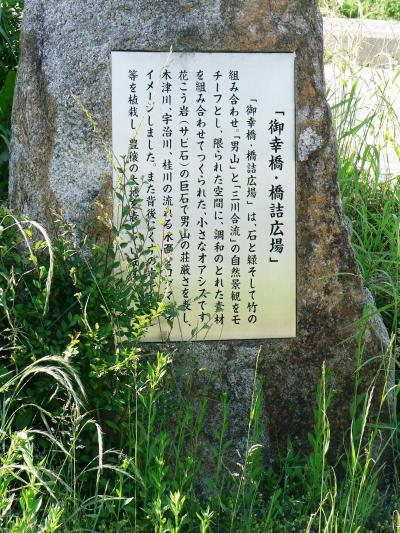 「御幸橋・橋詰広場」
「御幸橋・橋詰広場」は、石と緑そして竹の
組み合わせ。「男山」と「三川合流」の自然景観をモ
チーフとし、限られた空間に、調和のとれた素材
を組み合わせてつくられた、小さなオアシスです
花こう岩(サビ石)の巨石で男山の荘厳さを表し、
木津川、宇治川、桂川の流れる水
イメージしました。また背後
等を植栽し豊穣の大地